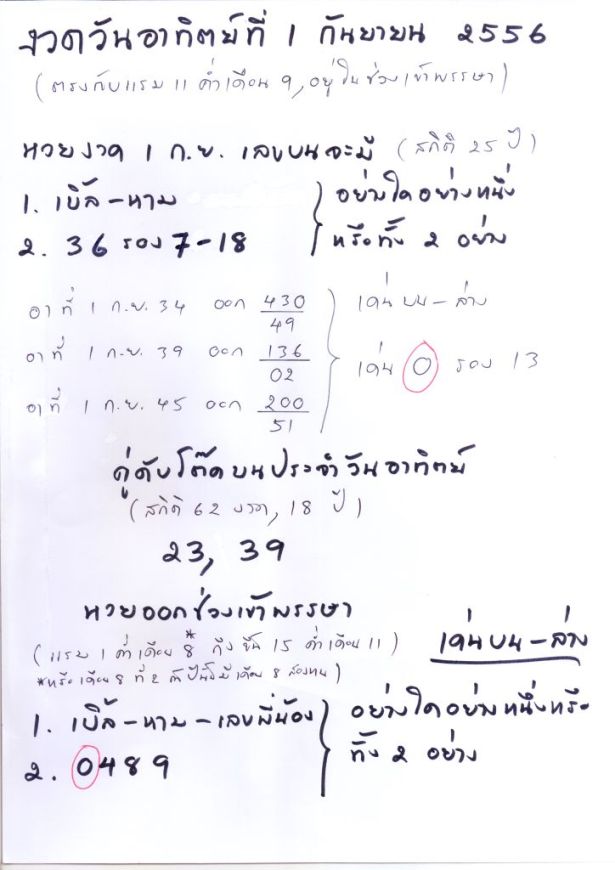 งวดวันอาทิตย์ที่ 1 กันยายน 2556
(ตรงกับแรม 11 ค่ำเดือน 9, อยู่ในช่วงเข้าพรรษา)
หวยงวด 1 ก.ย. เลขบนจะมี (สถิติ 25 ปี)
1. เบิ้ล-หาม } อย่างใดอย่างหนึ่ง
2. 36 รอง 7-18 หรือทั้ง 2 อย่าง
อา ที่ 1 ก.ย. 34 ออก 430 } เด่นบน-ล่าง
49
อา ที่ 1 ก.ย. 39 ออก 136 เด่น 0 รอง 13
02
อา ที่ 1 ก.ย. 45 ออก 200
51
คู่ดับโต๊ดบนประจำวันอาทิตย์
(สถิติ 62 งวด, 18 ปี)
23, 39
หวยออกช่วงเข้าพรรษา
(แรม 1 ค่ำเดือน 8* ถึงขึ้น 15 ค่ำเดือน 11) เด่นบน-ล่าง
*หรือเดือน 8 ที่ 2 ถ้าปีนั้นมีเดือน 8 สองหน)
1. เบิ้ล-หาม-เลขพี่น้อง } อย่างใดอย่างหนึ่งหรือ
2. 0489 ทั้ง 2 อย่าง